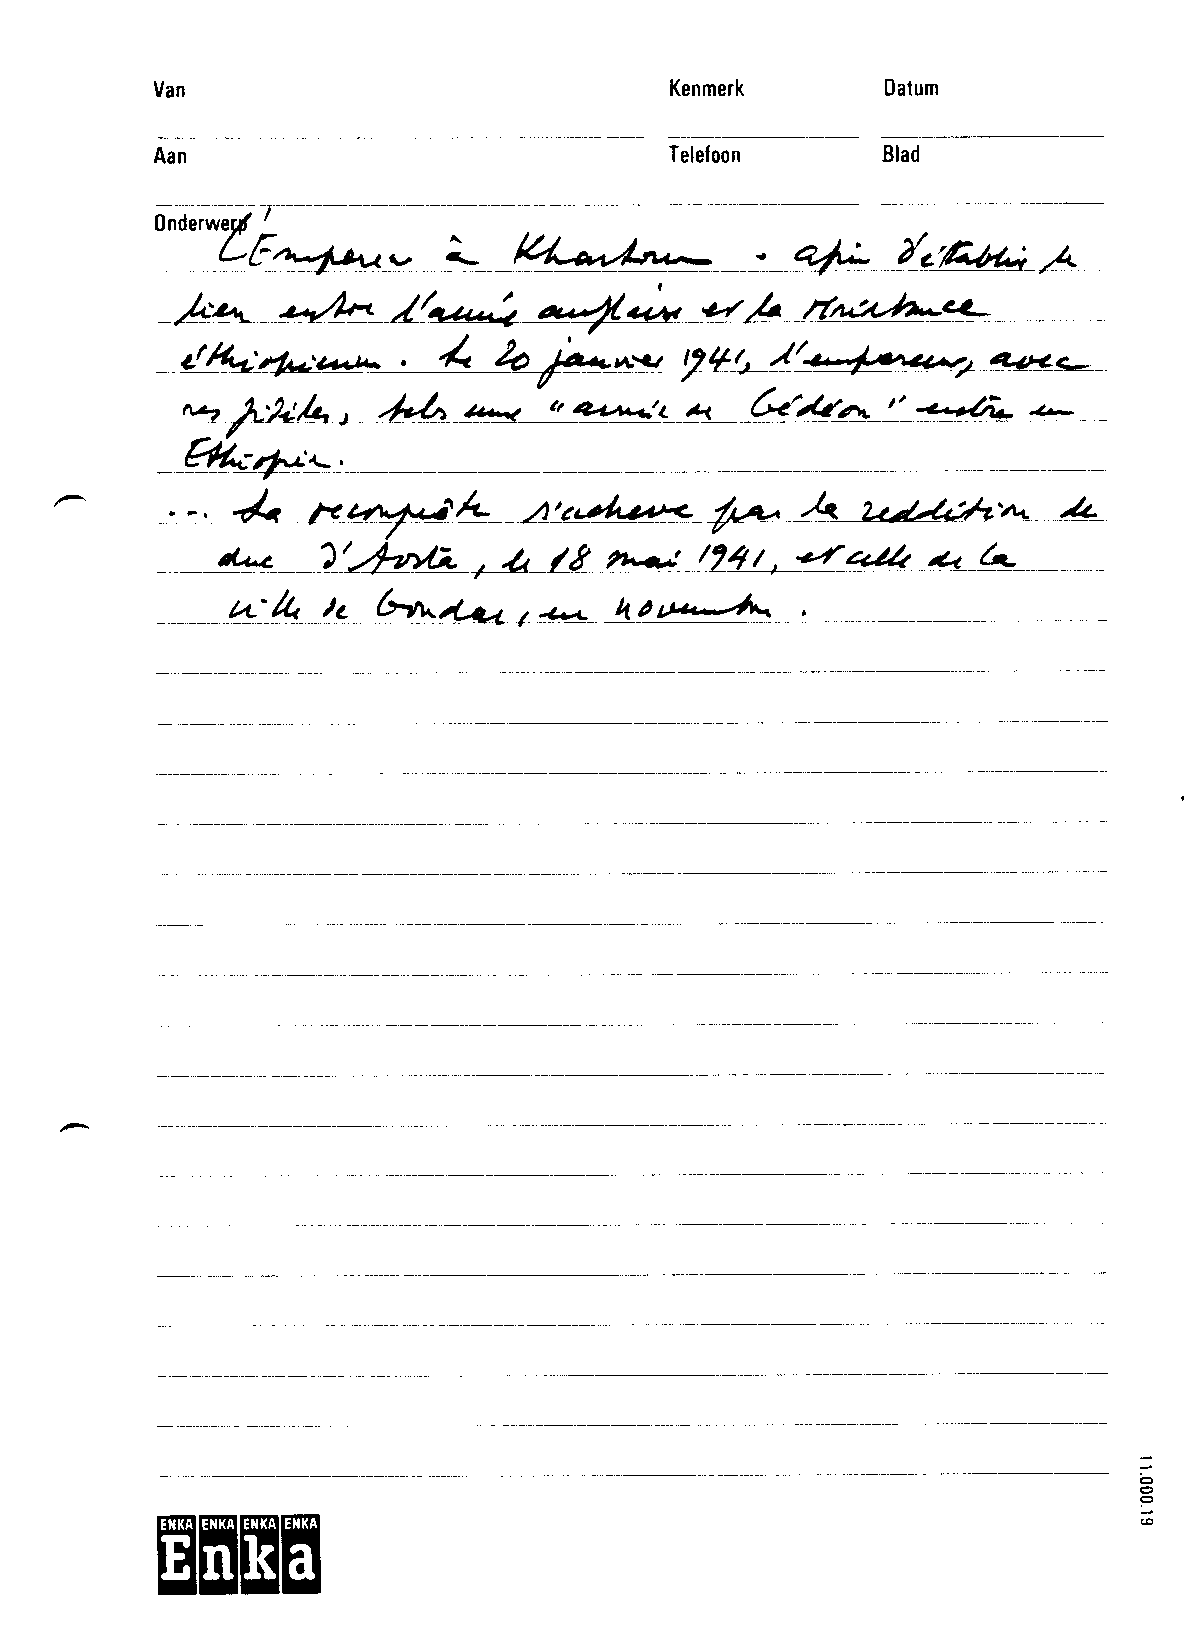 Van Kenmerk Datum
Aan Telefoon Blad
Onderwerp
L'Empereur à Khartoum . afin d'établir le
lien entre l'armée anglaise et la résistance
éthiopienne. Le 20 janvier 1941, l'empereur, avec
ses fidèles, tels une "armée de Gédéon" entre en
Ethiopie.
... La reconquête s'achève par la reddition de
duc d'Aosta, le 18 mai 1941, et celle de la
ville de Gondar, en novembre.
11.000.19
ENKA ENKA ENKA ENKA
Enka